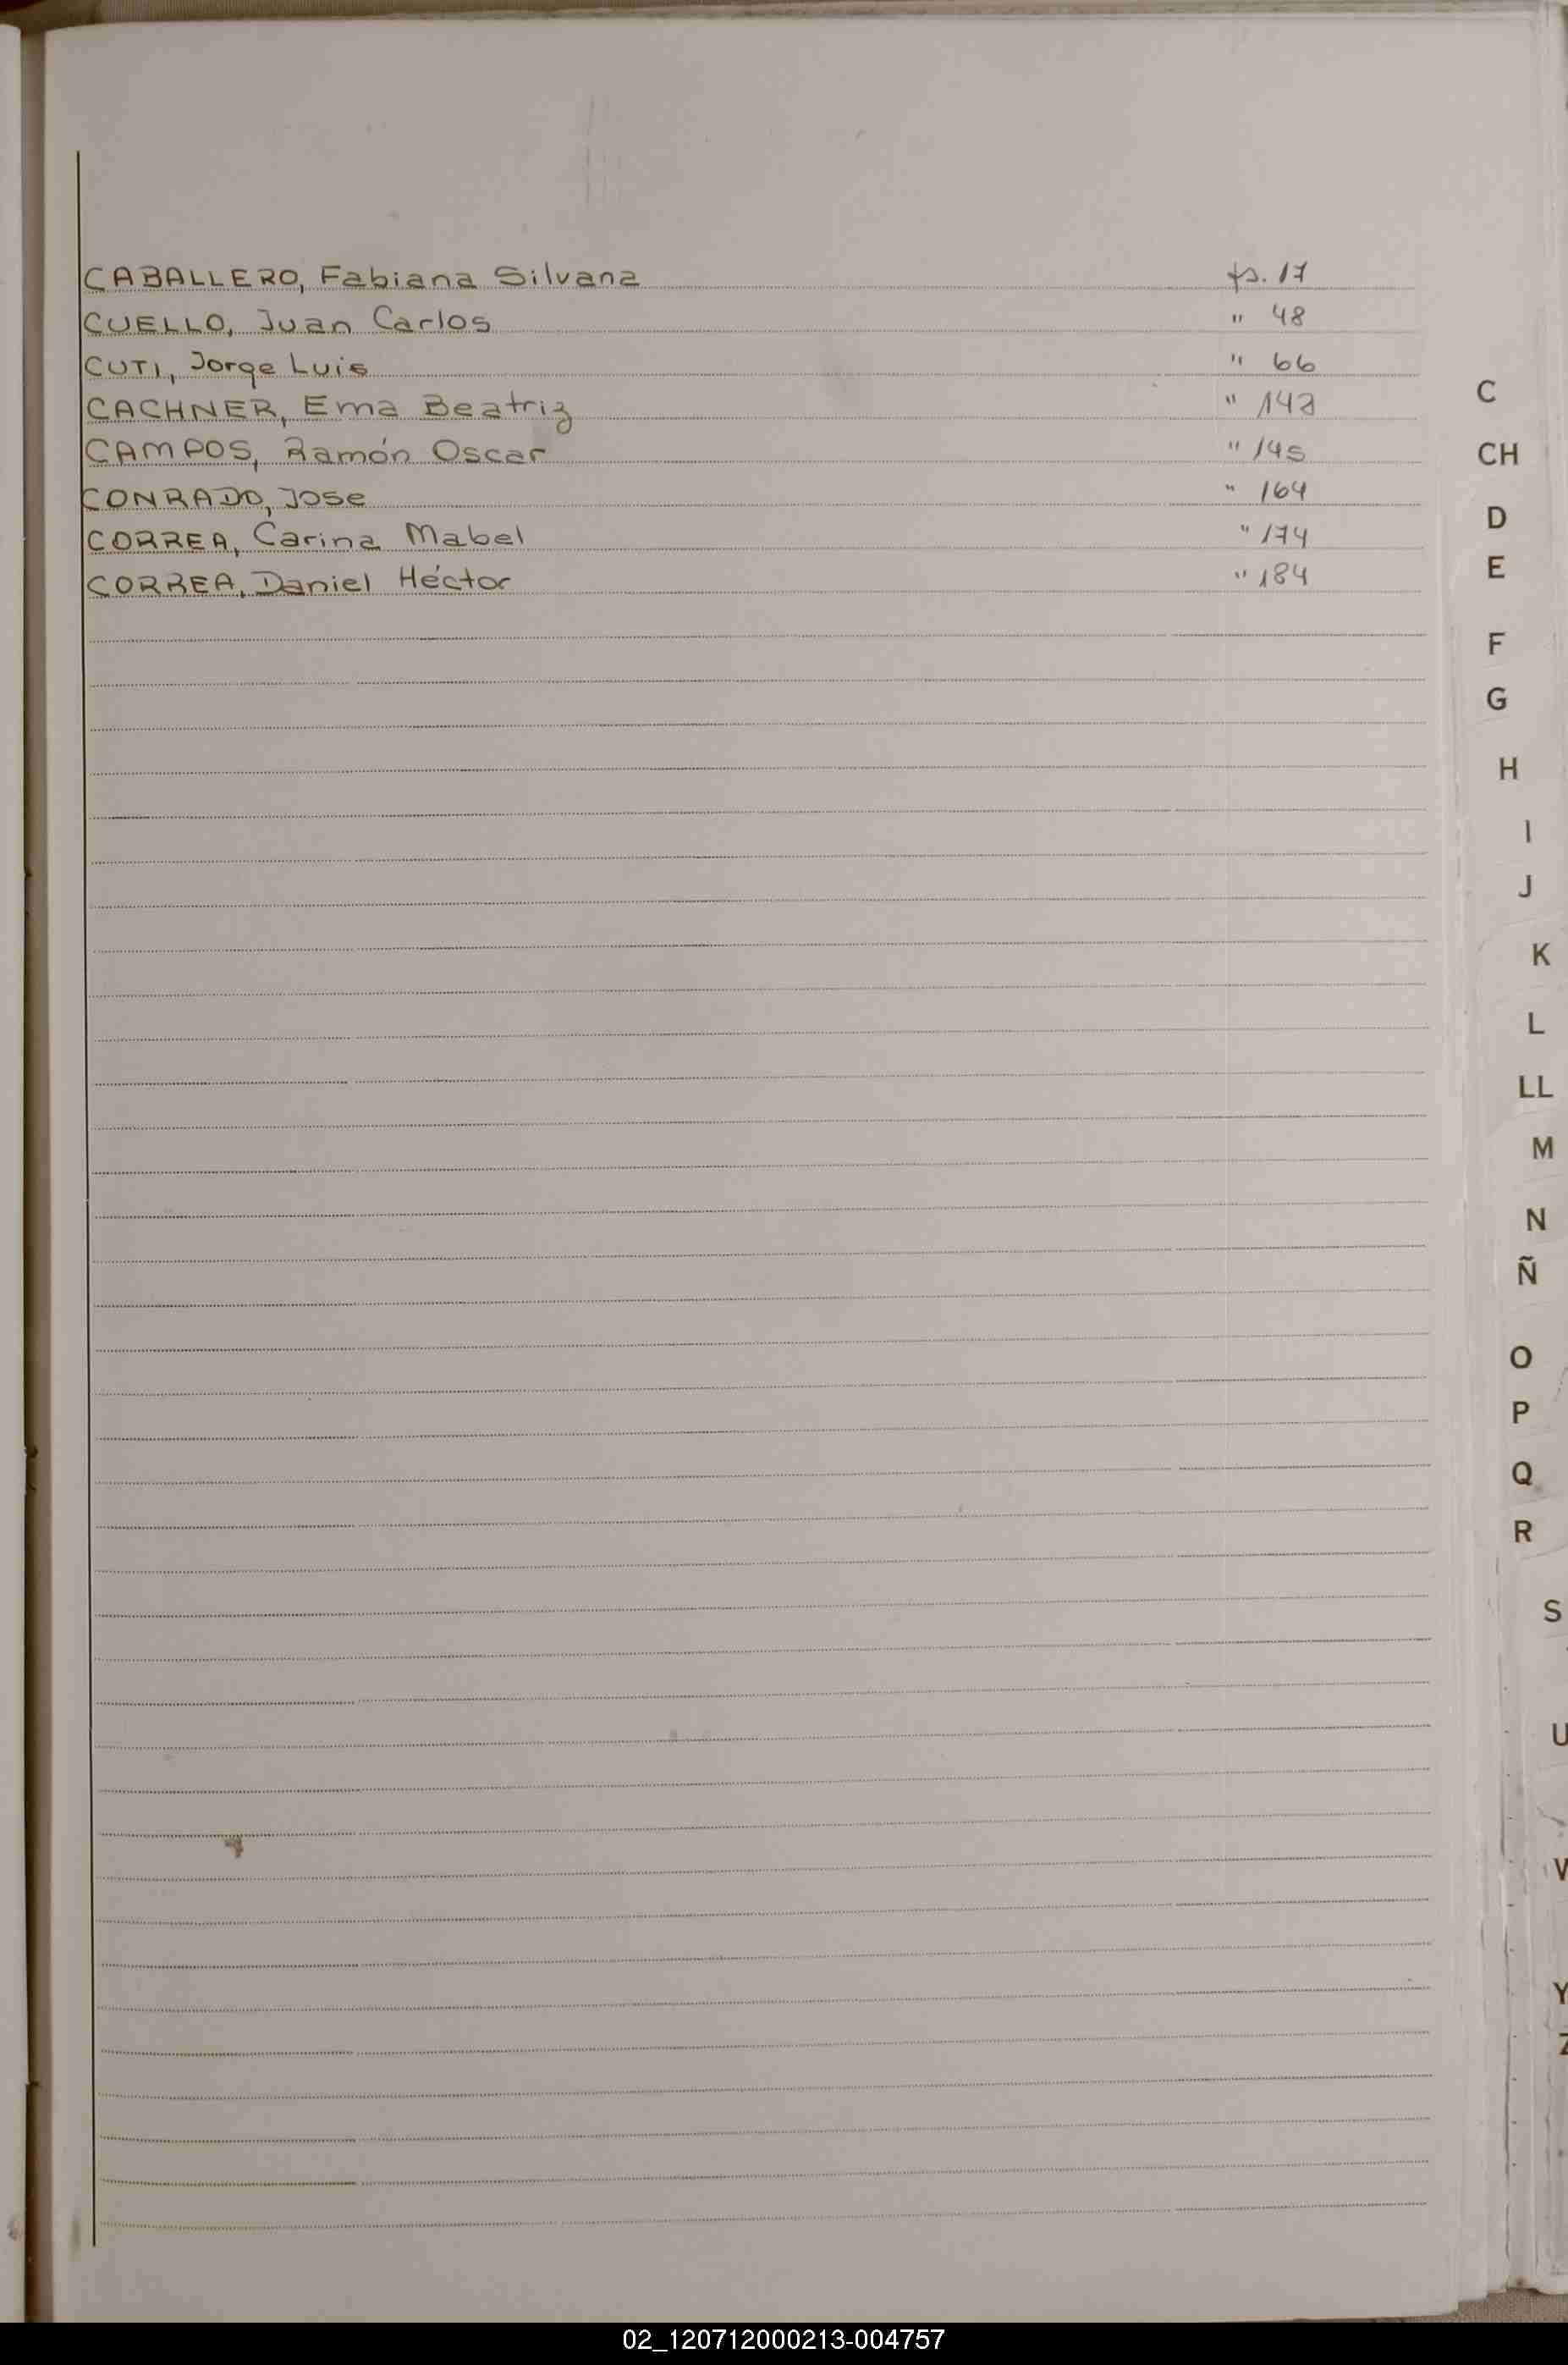 CABALLERO, Fabiana Silvana fs. 17
CUELLO, Juan Carlos " 48
CUTI, Jorge Luis " 66
CACHNER, Ema Beatriz
CAMPOS, Ramón Oscar " 145
CONRADO, Jose " 164
CORREA, Carina Mabel " 174
CORREA, Daniel Héctor " 184
C
CH
D
E
F
G
H
I
J
K
L
LL
M
N
Ñ
O
P
Q
R
S
U
V
Y
Z
02_120712000213-004757